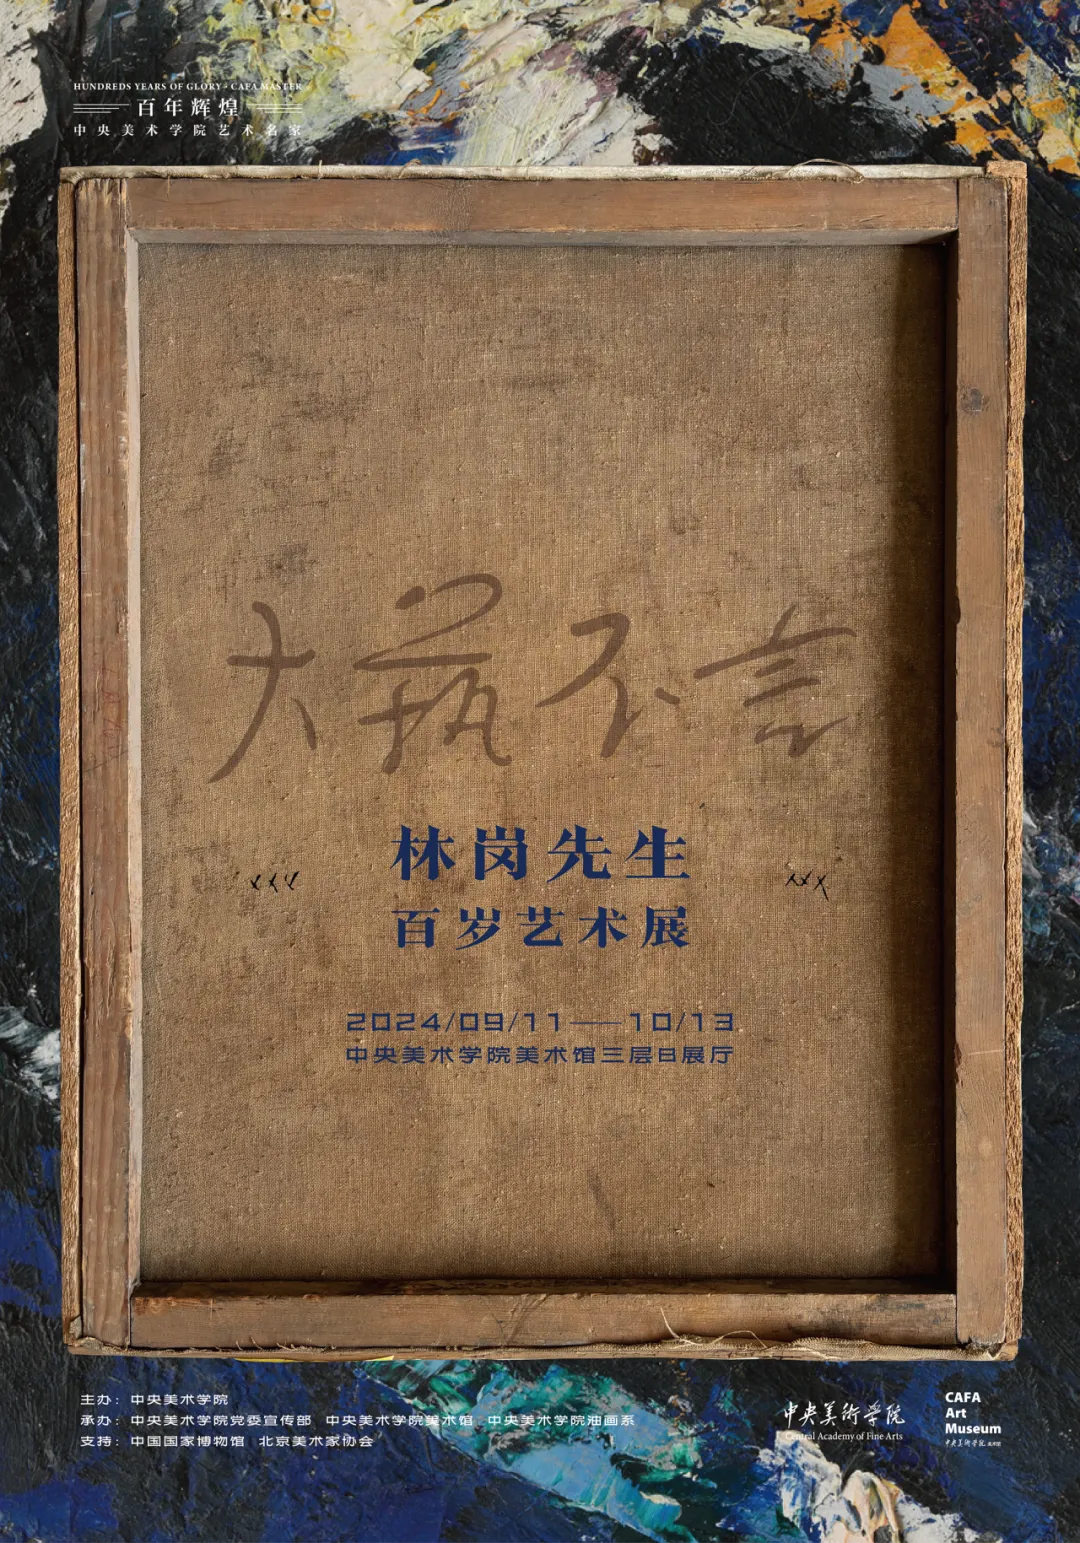 HUNDREDS YEARS OF GLORY · CAFA MASTER
百年辉煌
中央美术学院艺术名家
大艺不言
林岗先生
百岁艺术展
2024/09/11——10/13
中央美术学院美术馆三层B展厅
主办：中央美术学院
承办：中央美术学院党委宣传部 中央美术学院美术馆 中央美术学院油画系
支持：中国国家博物馆 北京美术家协会
中央美術学院
Central Academy of Fine Arts
CAFA
Art
Museum
中央美術学院 美术馆